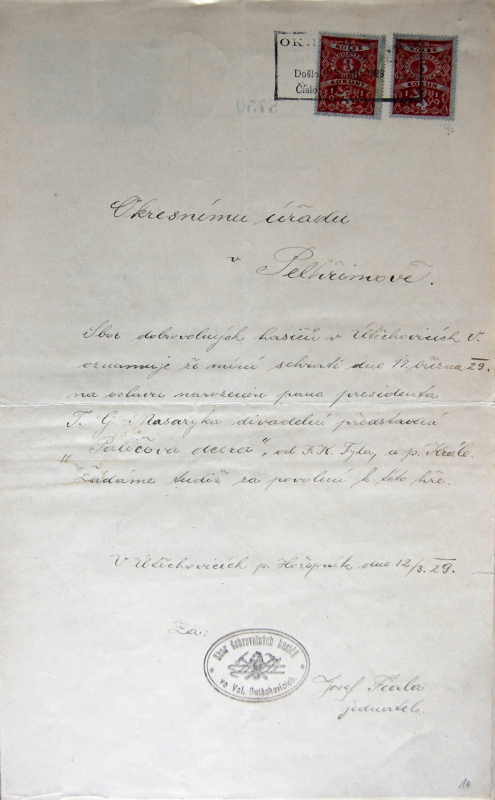 OKR
Došlo
Číslo
ČS
KOLEK
3
KORUNY
ČS
KOLEK
5
KORUN
Okresnímu úřadu
v
Pelhřimově.
Sbor dobrovolných hasičů v Útěchovicích V.
oznamuje že míní sehrati dne 17. března 29.
na oslavu narozenin pana presidenta
T. G. Masaryka divadelní představení
„Paličova dcera", od J. K. Tyla, u p. Krále.
Žádáme tudíž za povolení k této hře.
V Útěchovicích p. Hořepník dne 12/3. 29.
Za:
Sbor dobrovolných hasičů
ve Vel. Outěchovicích.
Josef
jednatel.
10